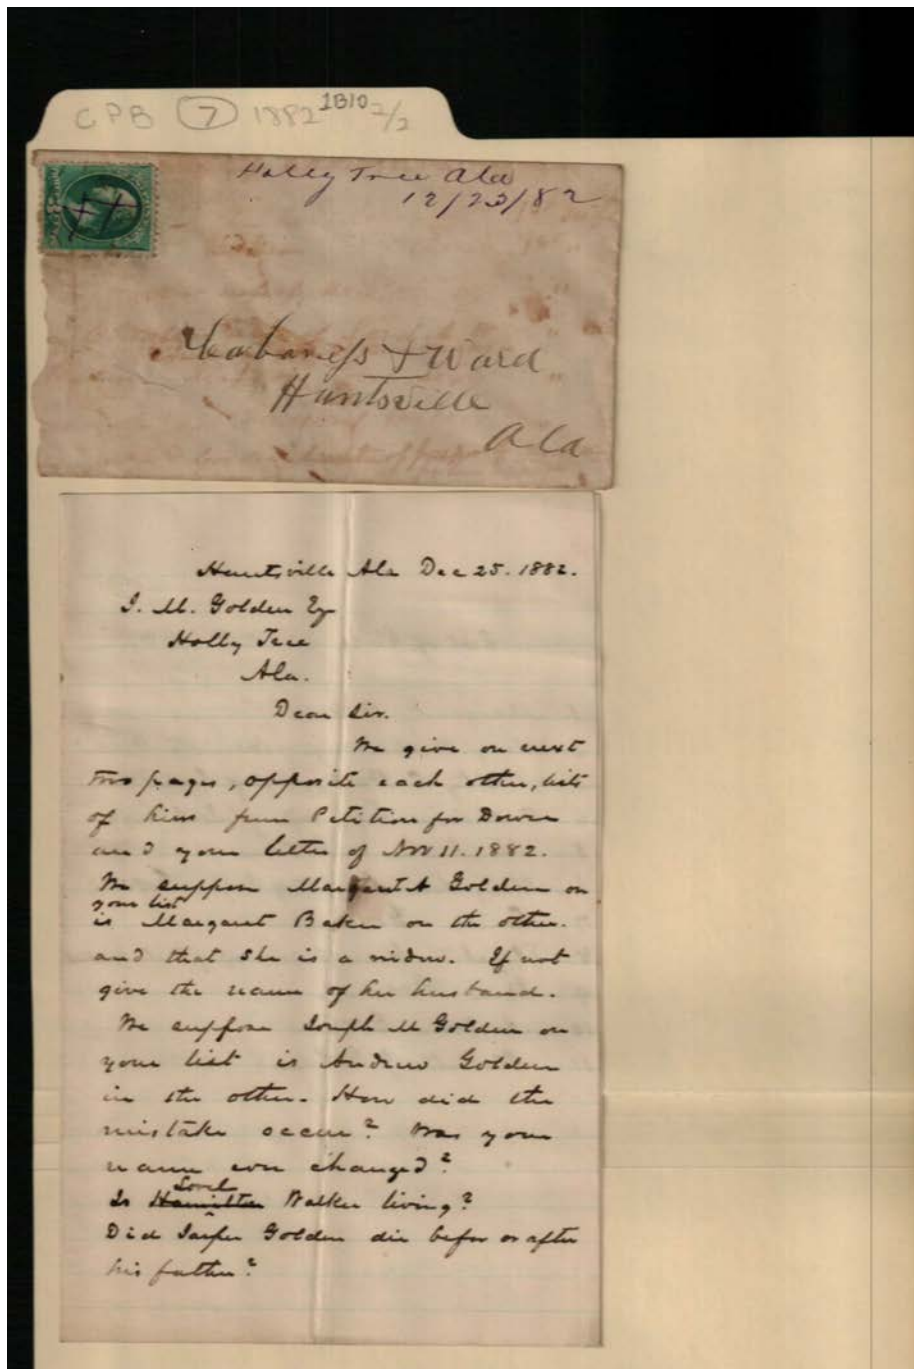 CPB 7 1882 1B10 2/2
Holly Tree Ala
12/23/82
Cabaness & Ward
Huntsville
Ala
Huntsville Ala Dec 25. 1882.
J. M. Golden Esq
Holly Tree
Ala.
Dear Sir.
We give on next
two pages, opposite each other, lists
of heirs from Petition for Dower
and your letter of Nov 11. 1882.
We suppose Margaret A Golden on
your list
is Margaret Baker on the other.
and that she is a widow. If not
give the name of her husband.
We suppose Joseph M Golden on
your list is Andrew Golden
in the other. How did the
mistake occur? Was your
name ever changed?
Is Hamilton Walker living?
Did Jasper Golden die before or after
his father?